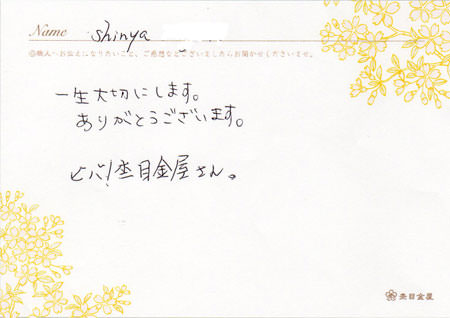 Name shinya
◎職人へお伝えになりたいこと、ご感想などございましたらお聞かせくださいませ。
一生大切にします。
ありがとうございます。
ビバ!杢目金屋さん。
杢目金屋